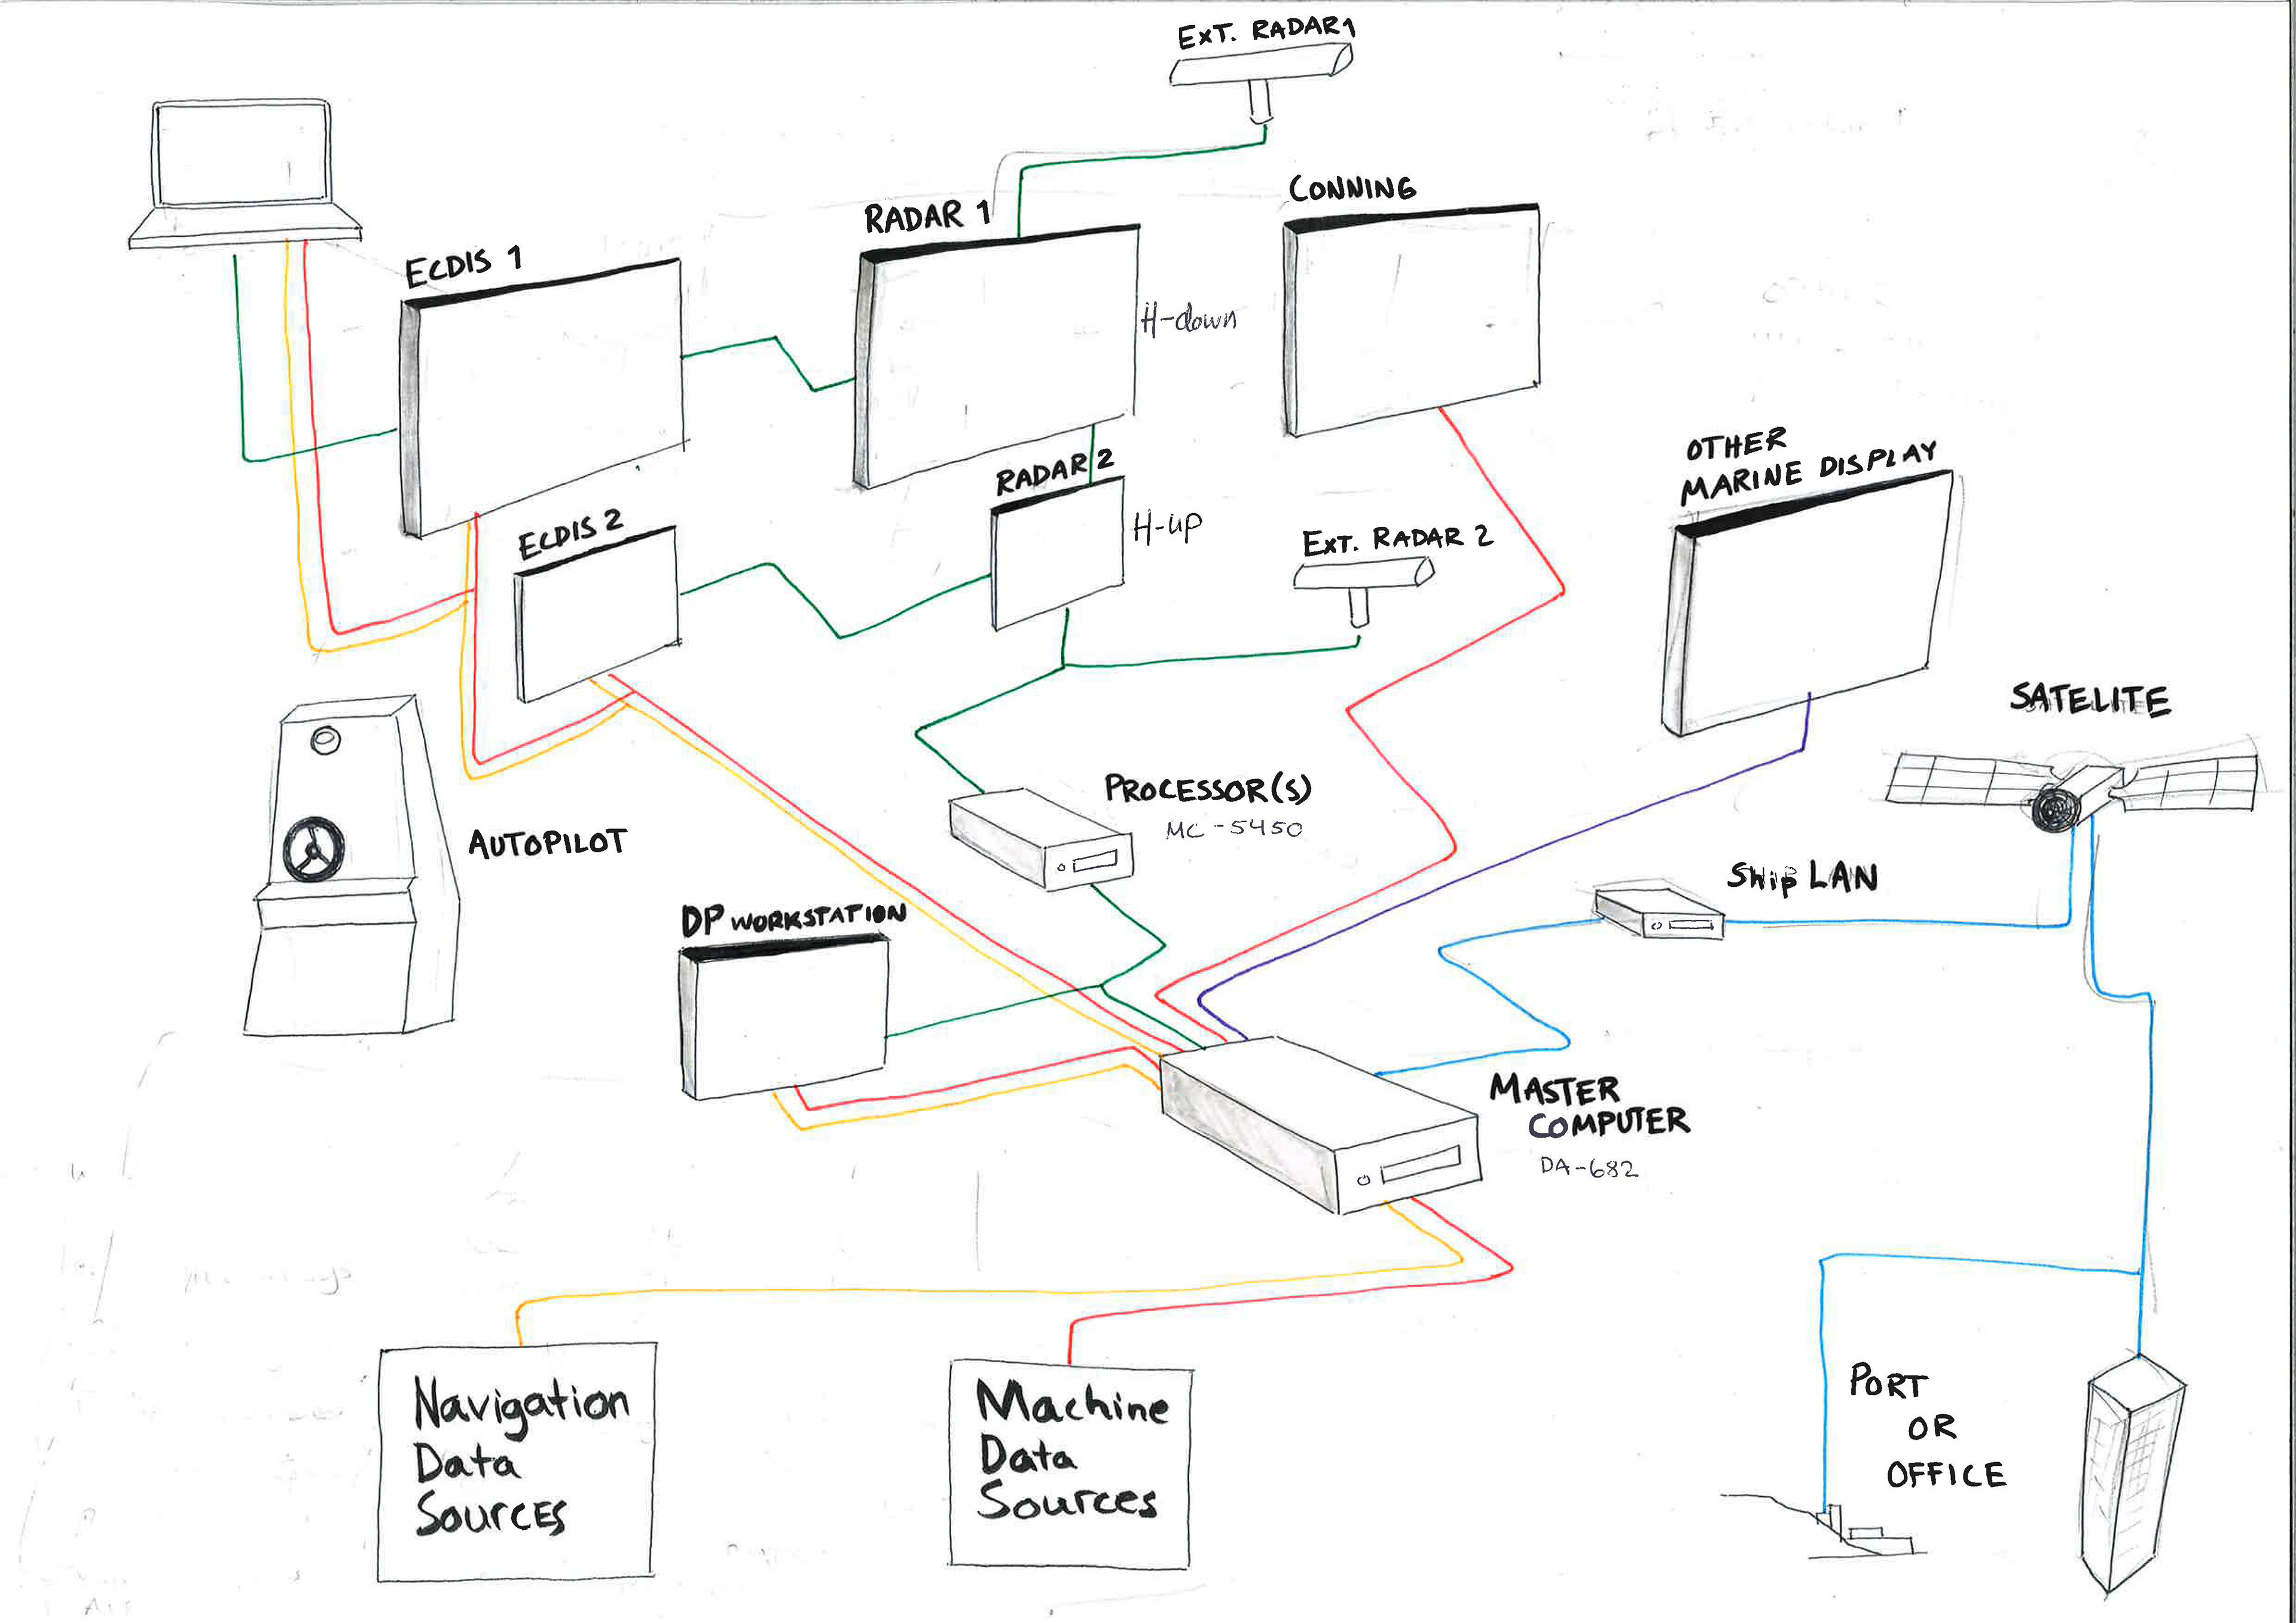 EXT. RADAR 1
CONNING
RADAR 1
ECDIS 1
H-down
OTHER
MARINE DISPLAY
RADAR 2
ECDIS 2
H-up
EXT. RADAR 2
SATELITE
PROCESSOR(S)
MC-5450
AUTOPILOT
Ship LAN
DP WORKSTATION
MASTER
COMPUTER
DA-682
Navigation
Data
Sources
Machine
Data
Sources
PORT
OR
OFFICE